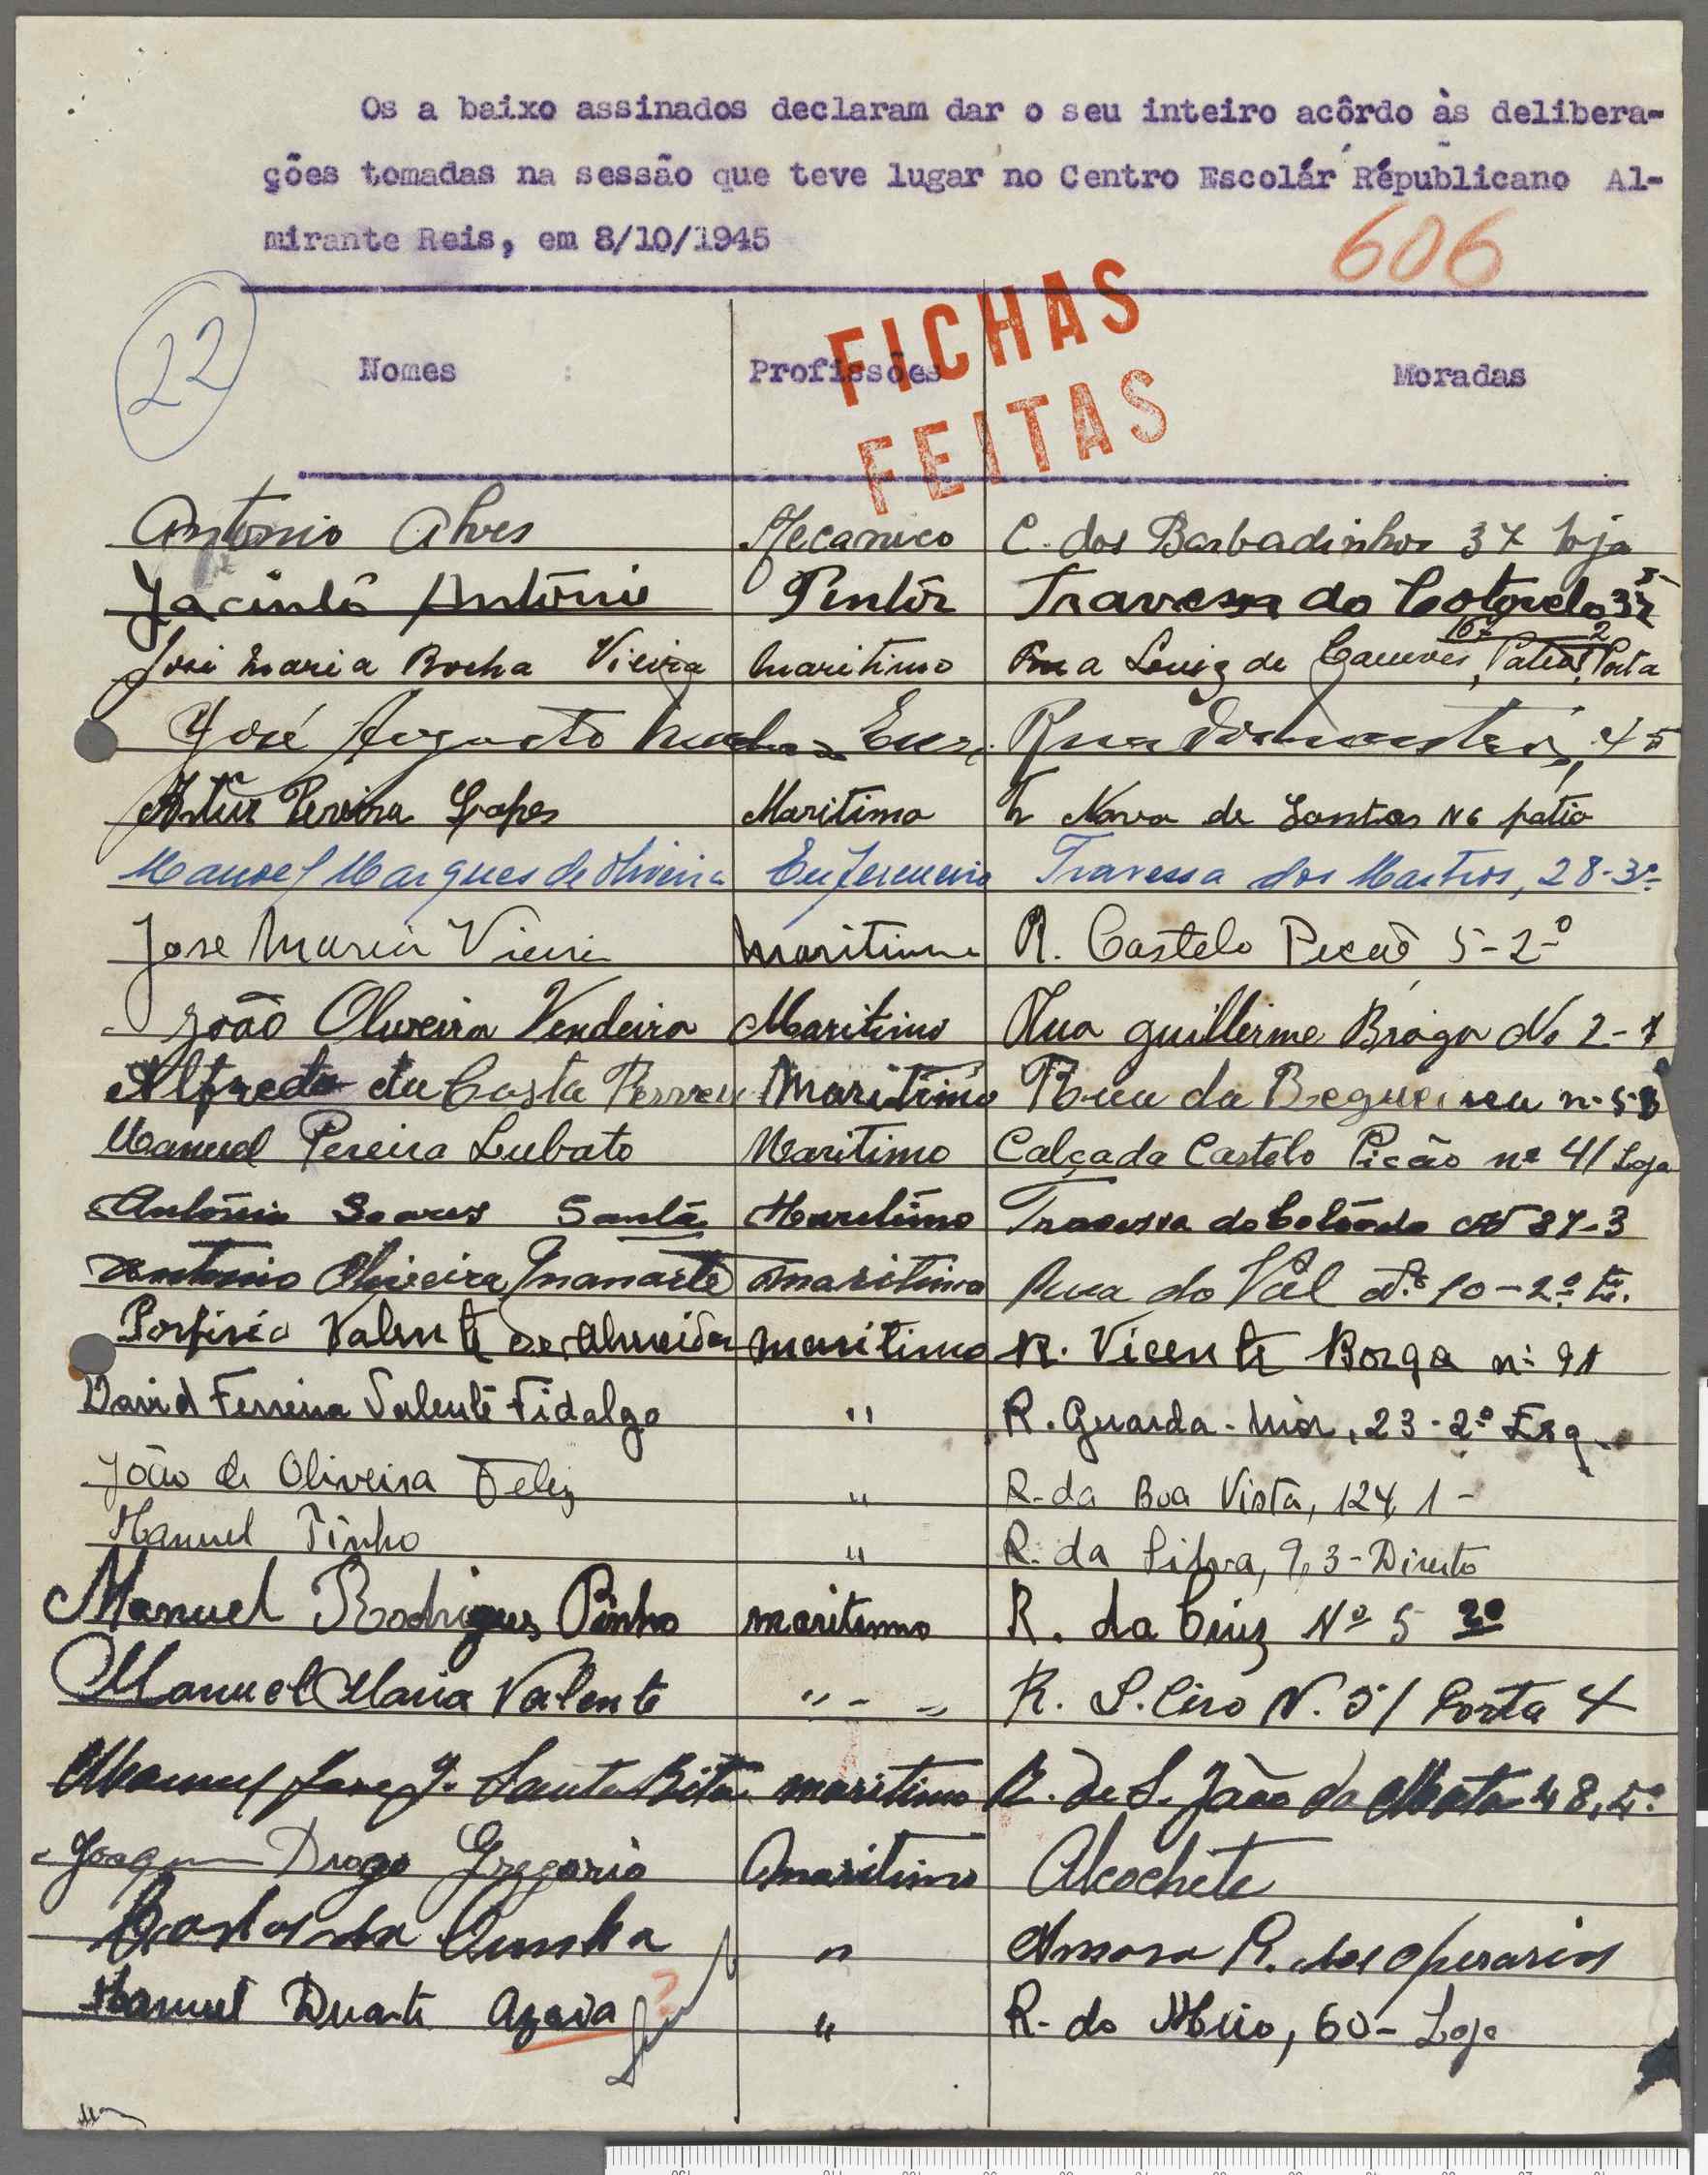 Os a baixo assinados declaram dar o seu inteiro acôrdo às delibera-
ções tomadas na sessão que teve lugar no Centro Escolár Républicano Al-
mirante Reis, em 8/10/1945
606
22
FICHAS
FEITAS
Nomes : Profissões Moradas
Antonio Alves Mecanico C. dos Barbadinhos 37 loja
Jacintô António Pintôr Travessa do Cotovelo 37
José Maria Rocha Vieira Maritimo Rua Luiz de Camões, 167 Patio, Porta 2
José Augusto Rua 45
Artur Pereira Lopes Maritimo T. Nova de Santos Nº 6 patio
Manoel Marques de Oliveira Enfermeiro Travessa dos Mastros, 28-3º
Jose Maria Vieira Maritimo R. Castelo Picaõ 5-2º
João Oliveira Vendeira Maritimo Rua guillerme Braga No 2-1
Alfredo da Costa Maritimo Rua da Regueira n.
Manuel Pereira Lubato Maritimo Calçada Castelo Picão nº 41 Loja
António Soares Santã Maritimo Travessa do Nº 37-3
Antonio Oliveira Manarte maritimo Rua do Val Nº 10-2º
Porfirio Valente de Almeida maritimo R. Vicente Borga nº 91
David Ferreira Valente Fidalgo " R. Guarda-Mór, 23-2º Esq.
João de Oliveira Feliz " R. da Boa Vista, 124, 1-
Manuel Pinho " R. da Silva, 9, 3-Direito
Manuel Rodrigues Pinho maritimo R. da Cruz Nº 5 2º
Manuel Maria Valente " - " R. S. Ciro N. 51 Porta 4
Manuel Jose Santa Rita maritimo R. de S. João da Mata 48, 4º
Joaquim Diogo Gregorio Maritimo Alcochete
Carlos da Cunha " Amora R. dos Operarios
Manuel Duarte Azoia ? " R. do Meio, 60-Loja